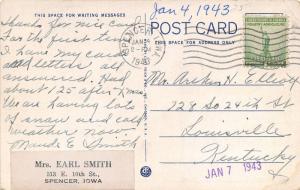 THIS SPACE FOR WRITING MESSAGES
Jan 4, 1943
POST CARD
THIS SPACE FOR ADDRESS ONLY
Thanks for nice card
For the first time
I have my cards
& letters all
answered. Had
about 125 after Xmas
We are having lots
of snow and cold
weather now
Maude E Smith
Mrs. EARL SMITH
513 E. 10th St.,
SPENCER, IOWA
SPENCER
JAN 5
1943
Elliott
128 So 24th St
Louisville
Kentucky
JAN 7 1943